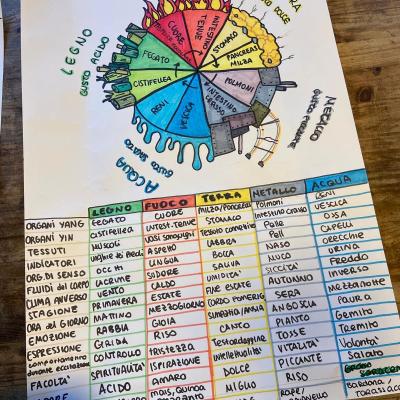 TERRA
GUSTO DOLCE
LEGNO
GUSTO ACIDO
METALLO
GUSTO PICCANTE
ACQUA
GUSTO SALATO
CUORE
INTESTINO TENUE
STOMACO
PANCREAS MILZA
POLMONI
INTESTINO CRASSO
VESCICA
RENI
CISTIFELLEA
FEGATO
LEGNO FUOCO TERRA METALLO ACQUA
ORGANI YANG FEGATO CUORE MILZA/PANCREAS Polmoni RENI
ORGANI YIN CISTIFELLEA INTEST. TENUE STOMACO Intestino Crasso VESCICA
TESSUTI MUSCOLI VASI SANGUIGNI TESSUTO CONNETTIVO Pelle OSSA
INDICATORI UNGHIE ASPETTO LABBRA Peli CAPELLI
ORG. DI SENSO OCCHI LINGUA BOCCA NASO ORECCHIE
FLUIDI del CORPO LACRIME SUDORE SALIVA MUCO URINA
CLIMA AVVERSO VENTO CALDO UMIDITÀ SICCITÀ FREDDO
STAGIONE PRIMAVERA ESTATE FINE ESTATE AUTUNNO Inverno
ORA del GIORNO MATTINO MEZZOGIORNO TARDO POMERIG. SERA Mezzanotte
EMOZIONE RABBIA GIOIA ANGOSCIA Paura
ESPRESSIONE GRIDA RISO CANTO PIANTO Gemito
comportamento durante eccitazione CONTROLLO tristezza Testardaggine TOSSE Tremito
FACOLTA' SPIRITUALITÀ ISPIRAZIONE Intellettualità VITALITÀ Volontà
ACIDO AMARO DOLCE PICCANTE Salato
mais, quinoa MIGLIO RISO